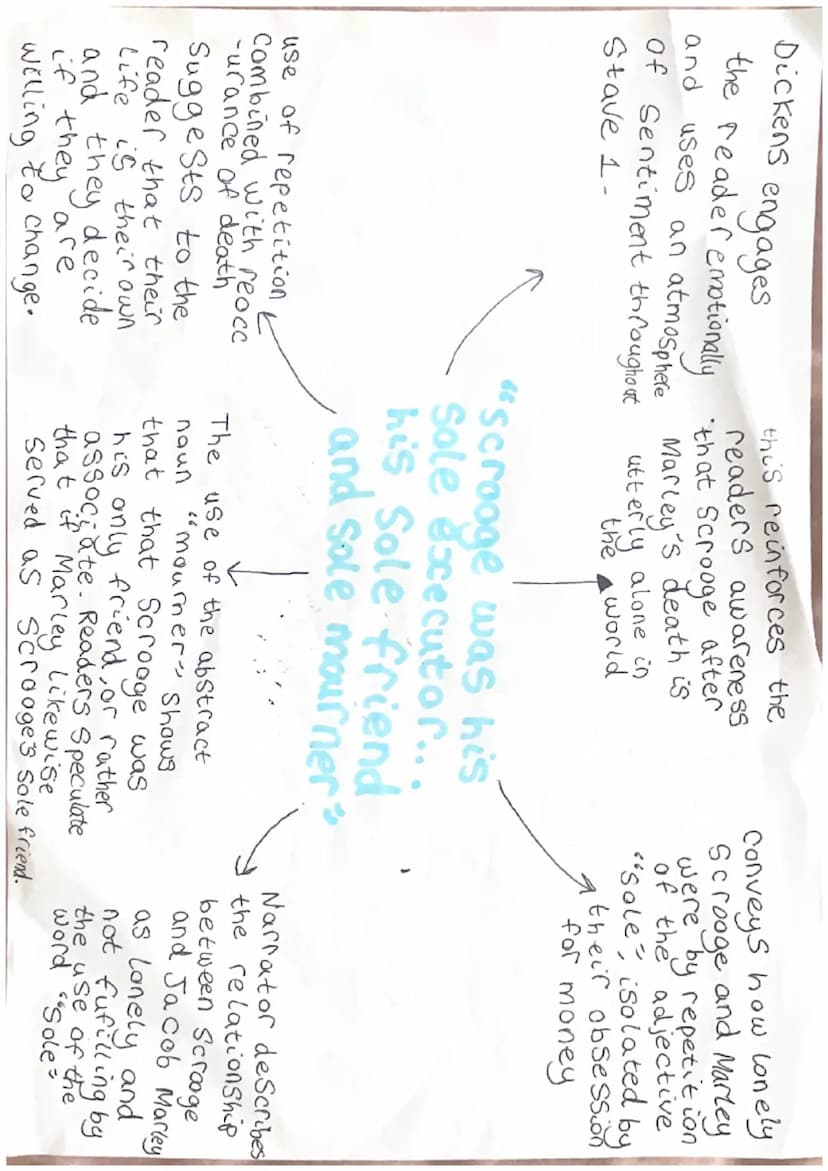 Dickens engages
the reader emotionally
and uses an atmosphere
of sentiment throughout
Stave 1.
this reinforces the
readers awareness
that scrooge after
Marley's death is
utterly alone in
the world
conveys how lonely
Scrooge and Marley
were by repetition
of the adjective
"sole", isolated by
their obsession
for money
"scrooge was his
sole executor...
his sole friend
and sole mourner"
use of repetition
combined with reocc
-urance of death
suggests to the
reader that their
life is their own
and they decide
if they are
willing to change.
The use of the abstract
noun "mourner" shows
that that Scrooge was
his only friend, or rather
associate. Readers speculate
that if Marley likewise
served as Scrooge's sole friend.
Narrator describes
the relationship
between scrooge
and Jacob Marley
as lonely and
not fufilling by
the use of the
word "sole"